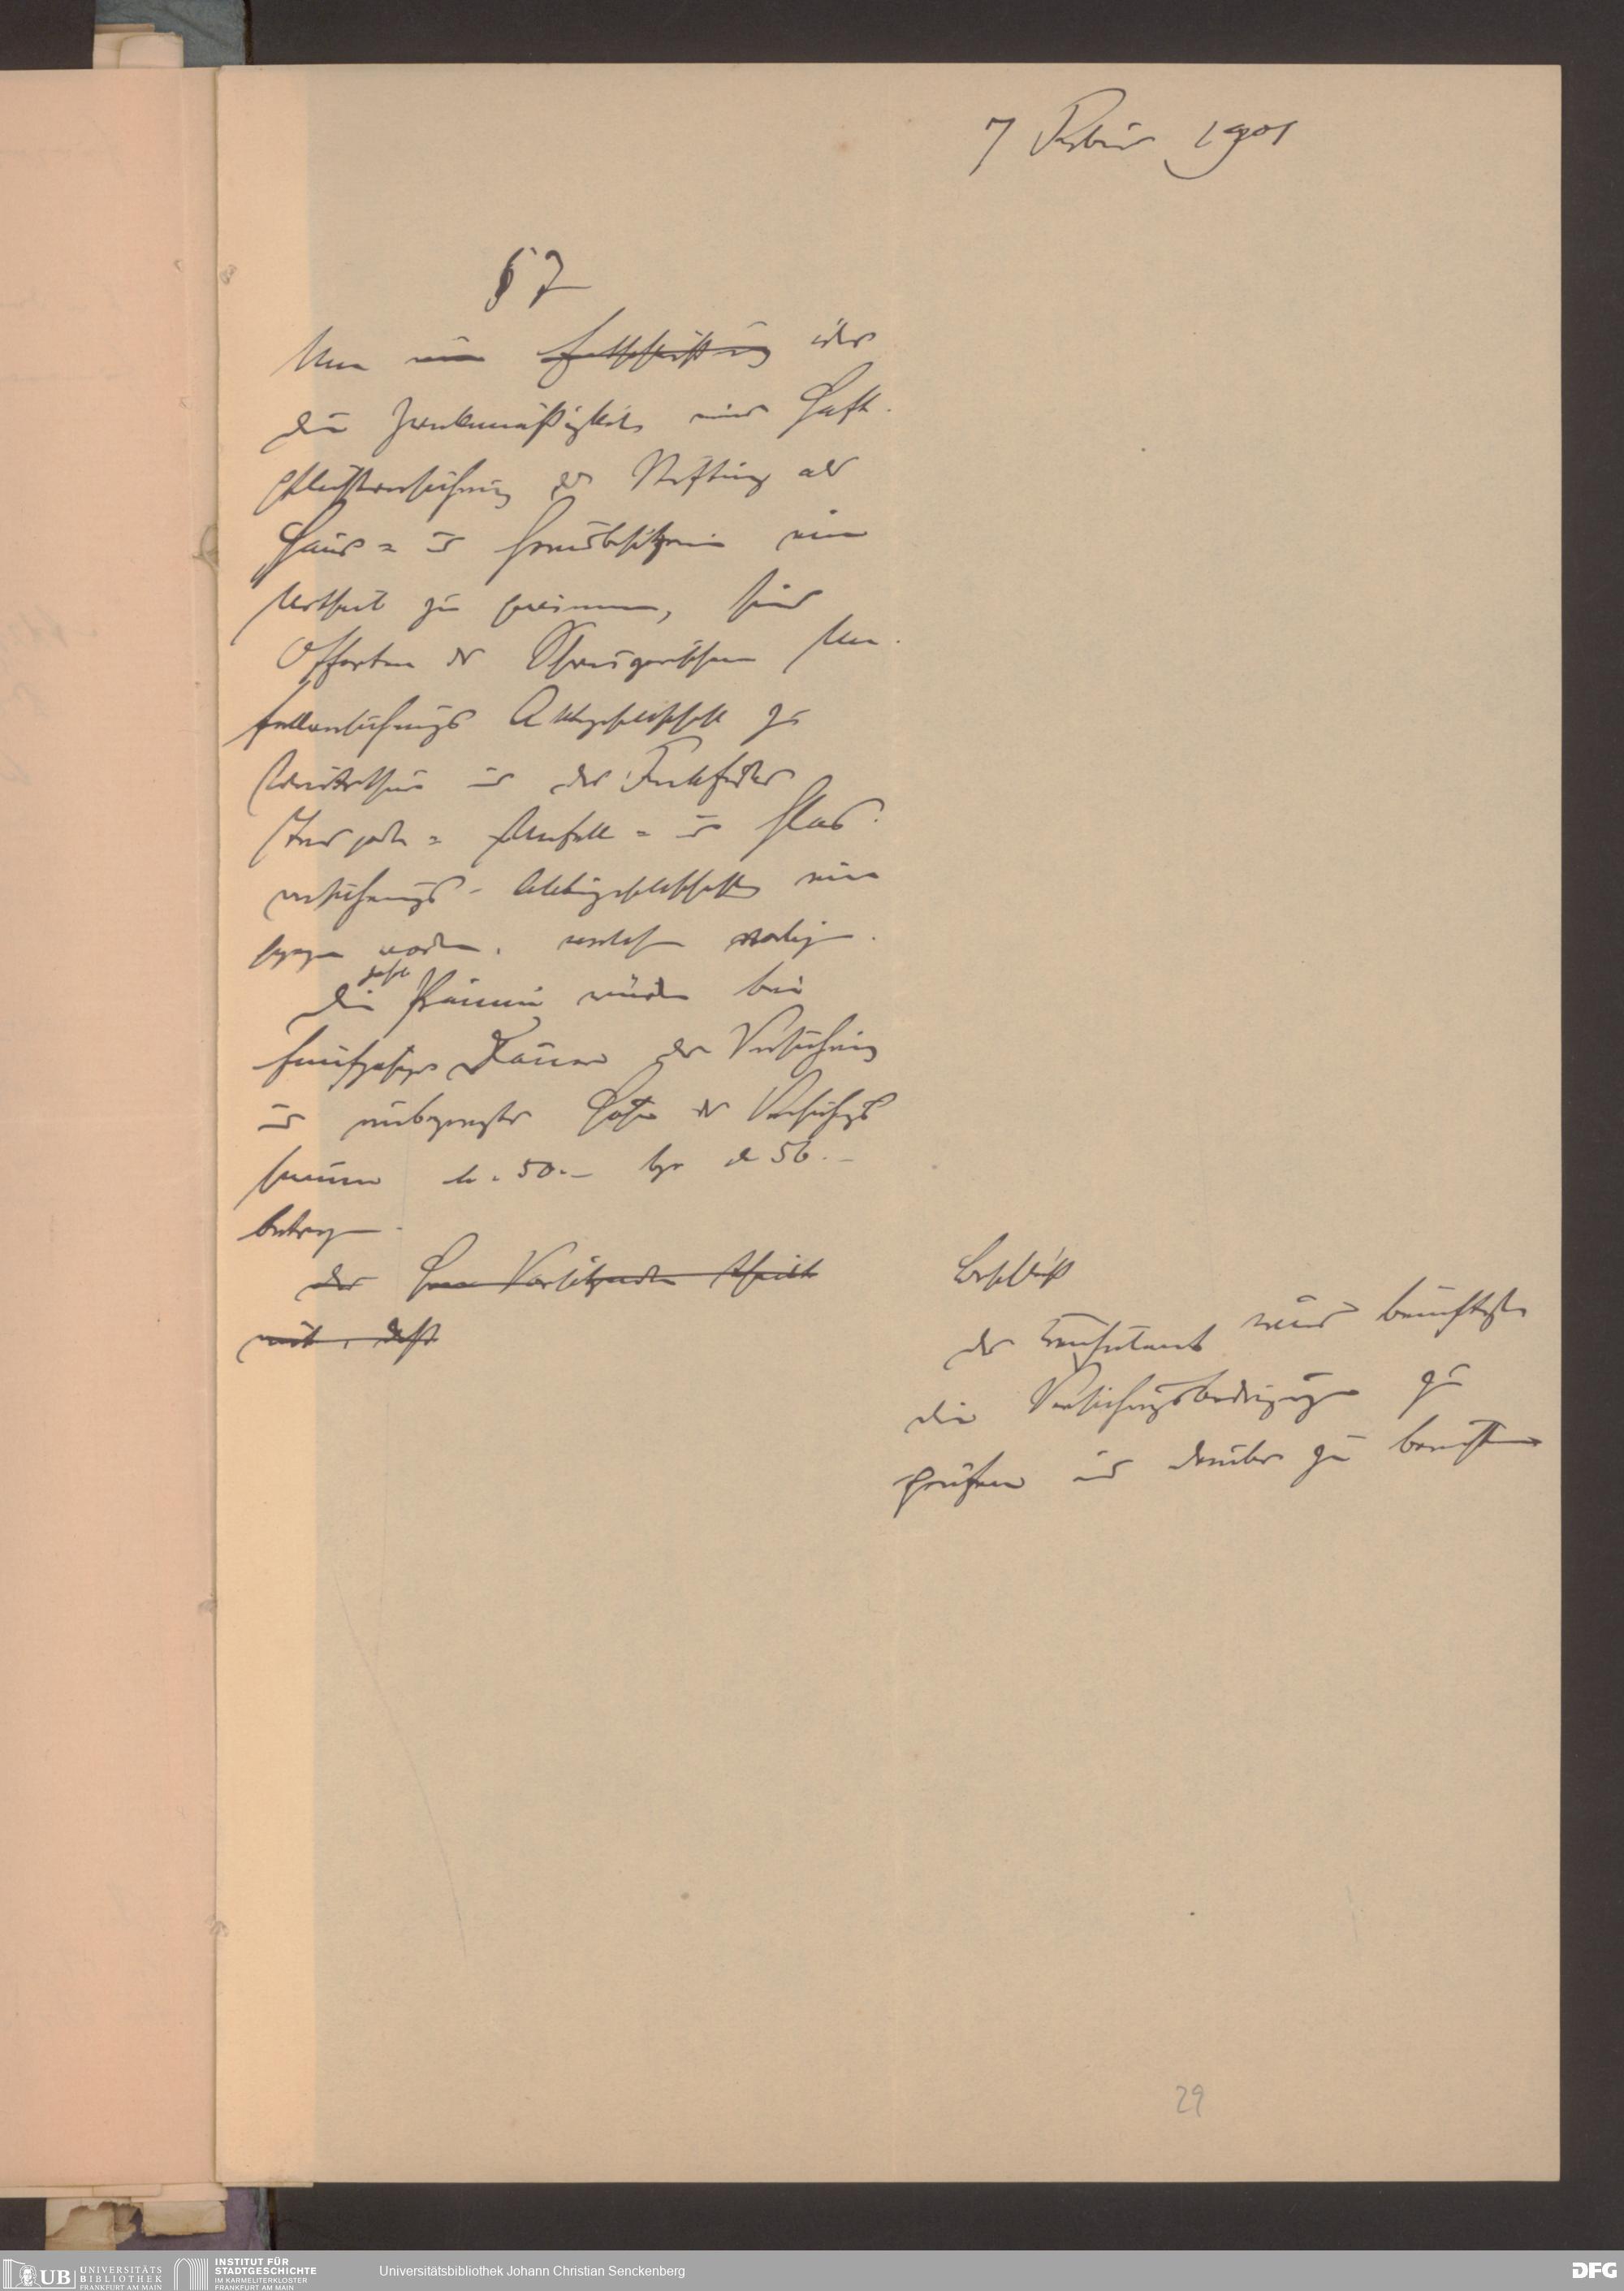 7 Februar 1901
§ 7
Um eine Entschließung über
die Zweckmäßigkeit einer Haft-
pflichtversicherung der Stiftung als
Haus- u Grundbesitzerin ein
Urtheil zu gewinnen, sind
Offerten der Schweizerischen Un-
fallversicherungs Aktiengesellschaft zu
Winterthur und der Frankfurter
Transport- Unfall- u Glas-
versicherungs-Aktiengesellschaft ein-
gezogen worden, welche vorliegen.
Die Jahres Prämie würde bei
fünfjähriger Dauer der Versicherung
und unbegrenzter Höhe der Versicherungs
summe M. 50.– bzw M 56.–
betragen.
der Herr Vorsitzende theilt
mit, daß
Beschluß
Der Consulent wird beauftragt
die Versicherungsbedingungen zu
prüfen und darüber zu berichten
29
UB UNIVERSITÄTS
BIBLIOTHEK
FRANKFURT AM MAIN
INSTITUT FÜR
STADTGESCHICHTE
IM KARMELITERKLOSTER
FRANKFURT AM MAIN
Universitätsbibliothek Johann Christian Senckenberg
DFG